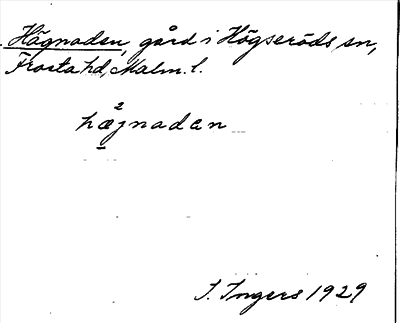 Hägnaden, gård i Högseröds sn,
Frosta hd, Malm. l.
hæjnadan
I. Ingers 1929